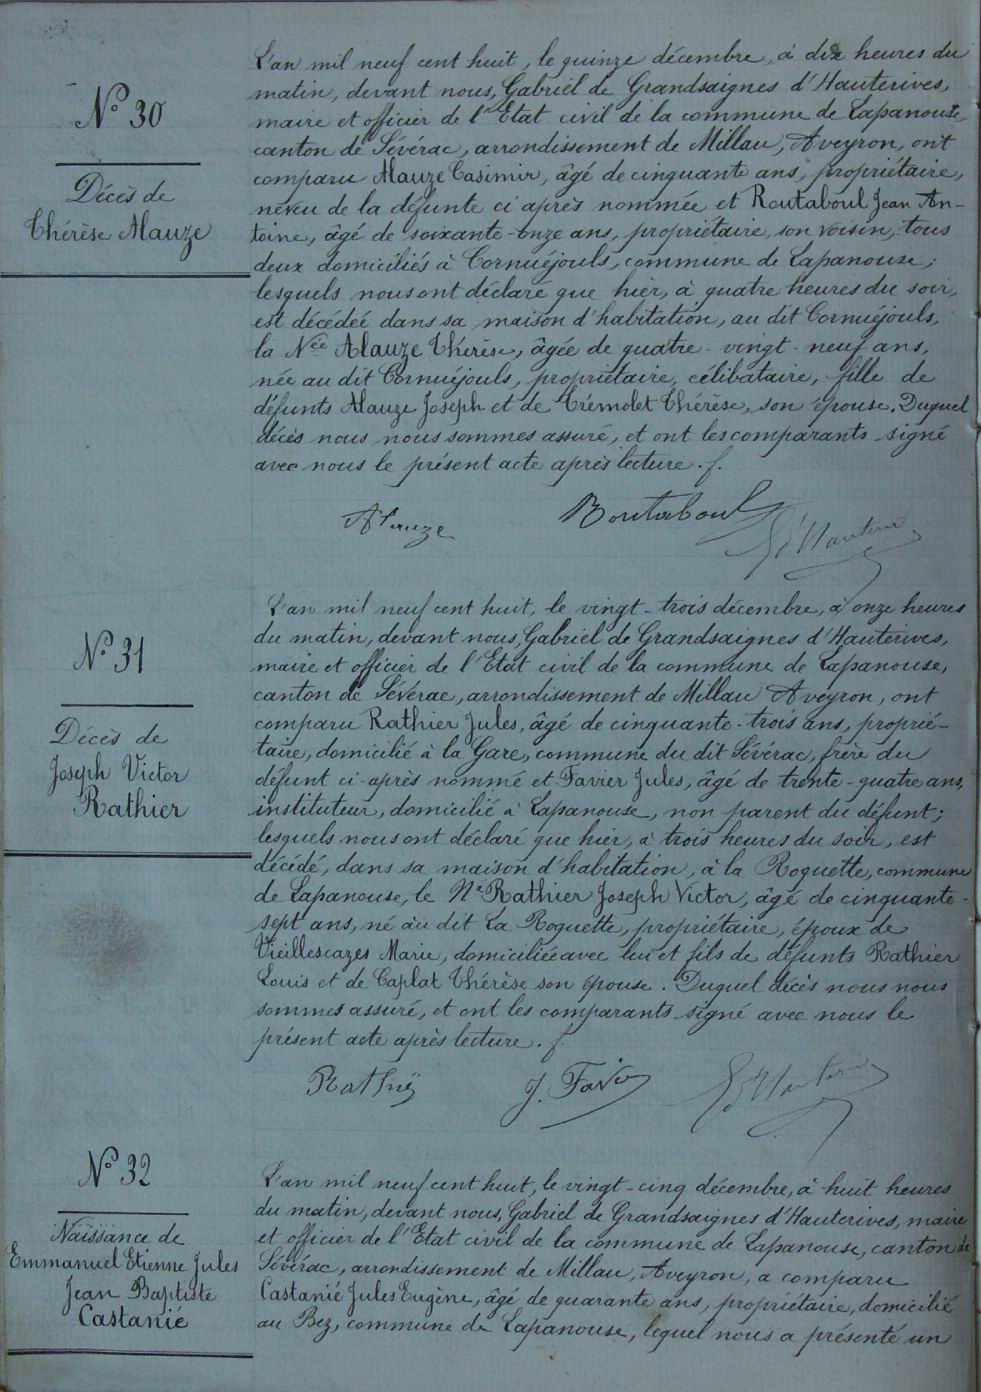 N° 30
Décès de
Thérèse Alauze
L'an mil neuf cent huit, le quinze décembre, à dix heures du
matin, devant nous, Gabriel de Grandsaignes d'Hauterives,
maire et officier de l'Etat civil de la commune de Lapanouse,
canton de Sévérac, arrondissement de Millau, Aveyron, ont
comparu Alauze Casimir, âgé de cinquante ans, propriétaire,
neveu de la défunte ci après nommée et Routaboul Jean An-
toine, âgé de soixante-onze ans, propriétaire, son voisin, tous
deux domiciliés à Cornuéjouls, commune de Lapanouse;
lesquels nous ont déclaré que hier, à quatre heures du soir,
est décédée dans sa maison d'habitation, au dit Cornuéjouls,
la Née Alauze Thérèse, âgée de quatre-vingt-neuf ans,
née au dit Cornuéjouls, propriétaire, célibataire, fille de
défunts Alauze Joseph et de Trémolet Thérèse, son épouse. Duquel
décès nous nous sommes assuré, et ont les comparants signé
avec nous le présent acte après lecture. f.
Alauze Routaboul G d'Hauterives
N° 31
Décès de
Joseph Victor
Rathier
L'an mil neuf cent huit, le vingt-trois décembre, à onze heures
du matin, devant nous, Gabriel de Grandsaignes d'Hauterives,
maire et officier de l'Etat civil de la commune de Lapanouse,
canton de Sévérac, arrondissement de Millau Aveyron, ont
comparu Rathier Jules, âgé de cinquante-trois ans, proprié-
taire, domicilié à la Gare, commune du dit Sévérac, frère du
défunt ci-après nommé et Favier Jules, âgé de trente-quatre ans,
instituteur, domicilié à Lapanouse, non parent du défunt;
lesquels nous ont déclaré que hier, à trois heures du soir, est
décédé, dans sa maison d'habitation, à la Roquette, commune
de Lapanouse, le Né Rathier Joseph Victor, âgé de cinquante-
sept ans, né au dit La Roquette, propriétaire, époux de
Vieillescazes Marie, domiciliée avec lui et fils de défunts Rathier
Louis et de Caplat Thérèse son épouse. Duquel décès nous nous
sommes assuré, et ont les comparants signé avec nous le
présent acte après lecture. f.
Rathier J. Favier G d'Hauterives
N° 32
Naissance de
Emmanuel Etienne Jules
Jean Baptiste
Castanié
L'an mil neuf cent huit, le vingt-cinq décembre, à huit heures
du matin, devant nous, Gabriel de Grandsaignes d'Hauterives, maire
et officier de l'Etat civil de la commune de Lapanouse, canton de
Sévérac, arrondissement de Millau, Aveyron, a comparu
Castanié Jules Eugène, âgé de quarante ans, propriétaire, domicilié
au Bez, commune de Lapanouse, lequel nous a présenté un